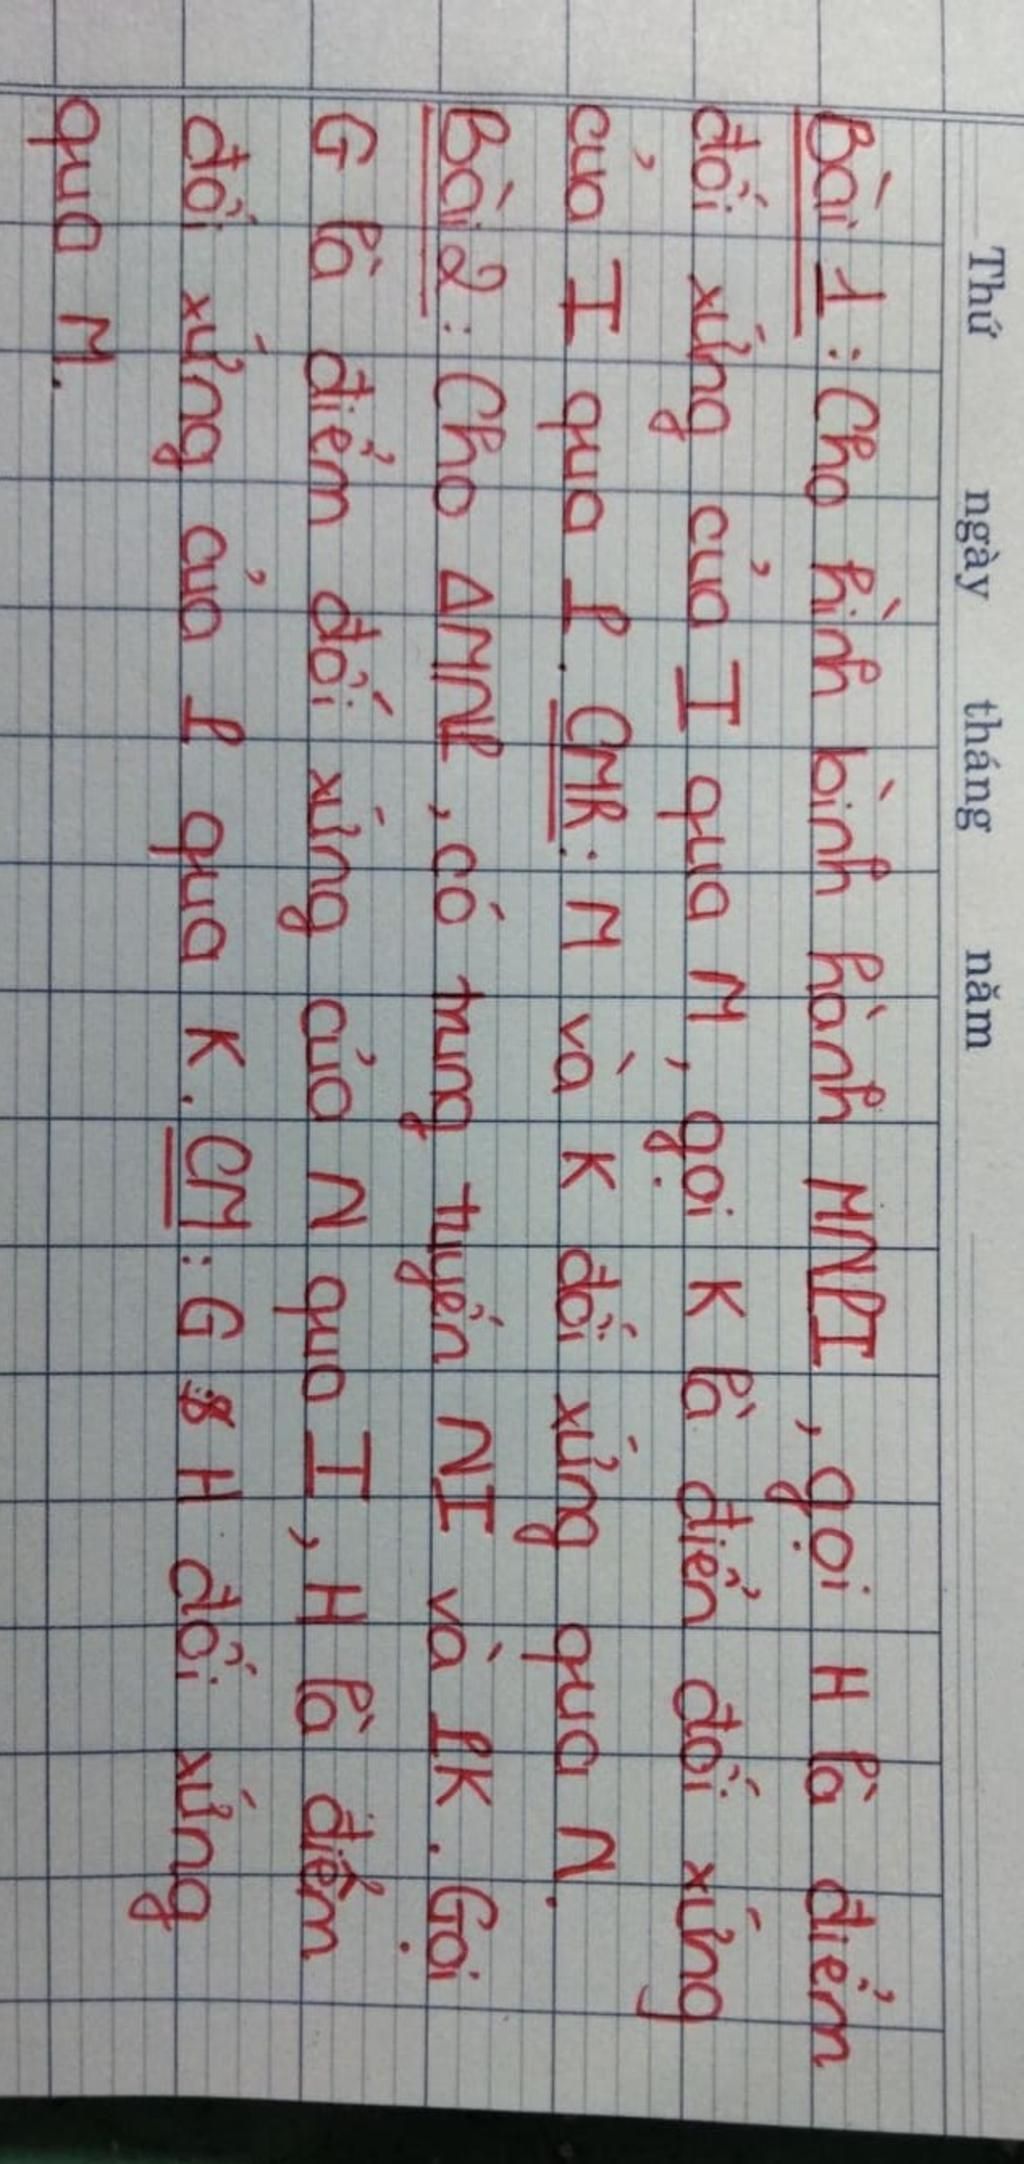 Thứ ngày tháng năm
Bài 1 : Cho hình bình hành MNPI , gọi H là điểm
đối xứng của I qua M , gọi K là điển đối xứng
của I qua P . CMR : M và K đối xứng qua N .
Bài 2 : Cho ΔMNP , có trung tuyến NI và PK . Gọi
G là điểm đối xứng của N qua I , H là điểm
đối xứng của P qua K . CM : G & H đối xứng
qua M .